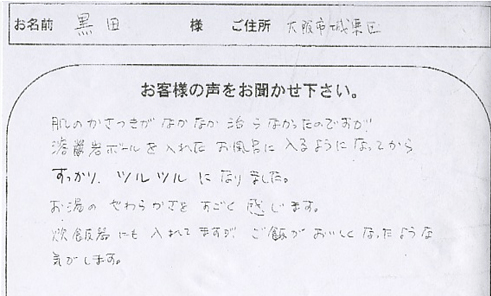 お名前 黒田 様 ご住所 大阪市城東区
お客様の声をお聞かせ下さい。
肌のかさつきがなかなか治らなかったのですが
溶離岩ボールを入れたお風呂に入るようになってから
すっかり、ツルツルになりました。
お湯のやわらかさをすごく感じます。
炊飯器にも入れてますが、ご飯がおいしくなったような
気がします。